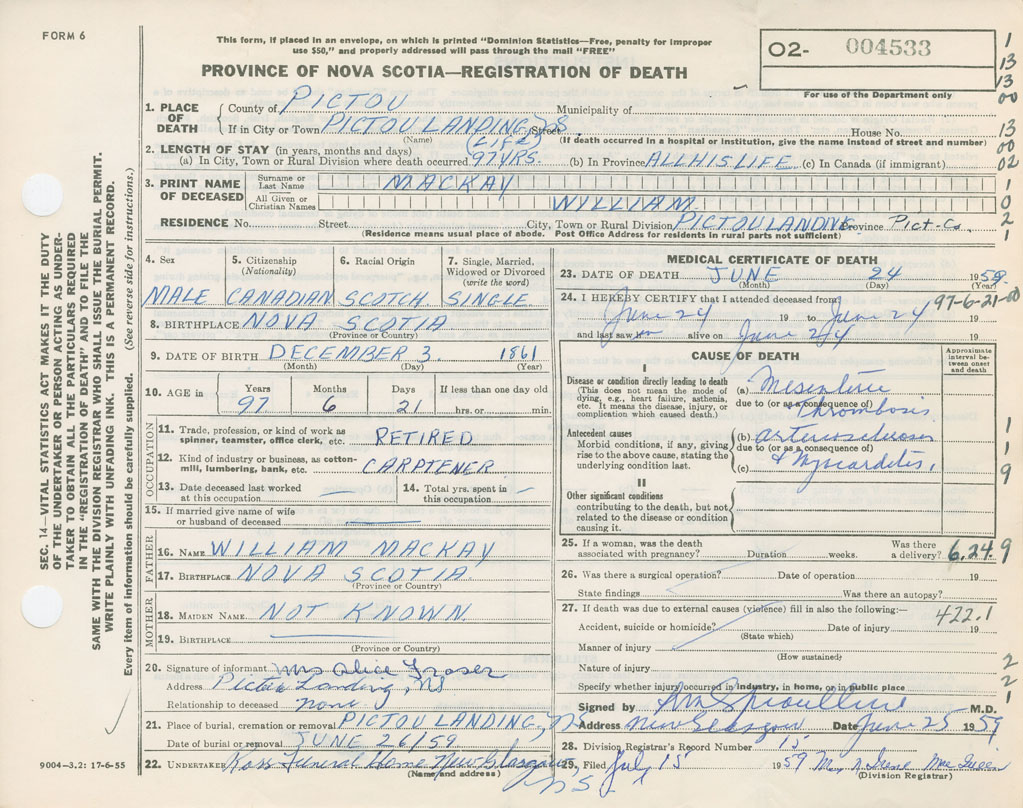 FORM 6
This form, if placed in an envelope, on which is printed "Dominion Statistics—Free, penalty for improper
use $50," and properly addressed will pass through the mail "FREE"
PROVINCE OF NOVA SCOTIA—REGISTRATION OF DEATH
O2- 004533
For use of the Department only
1
13
13
00
13
00
02
1
0
2
1
SEC. 14—VITAL STATISTICS ACT MAKES IT THE DUTY
OF THE UNDERTAKER OR PERSON ACTING AS UNDER-
TAKER TO OBTAIN ALL THE PARTICULARS REQUIRED
IN THE "REGISTRATION OF DEATH" AND TO FILE THE
SAME WITH THE DIVISION REGISTRAR WHO SHALL ISSUE THE BURIAL PERMIT.
WRITE PLAINLY WITH UNFADING INK. THIS IS A PERMANENT RECORD.
Every item of information should be carefully supplied. (See reverse side for instructions.)
1. PLACE OF DEATH
County of PICTOU Municipality of
If in City or Town PICTOU LANDING, N.S. Street House No.
(Name) (If death occurred in a hospital or institution, give the name instead of street and number)
2. LENGTH OF STAY (in years, months and days) (LIFE)
(a) In City, Town or Rural Division where death occurred 97 YRS. (b) In Province ALL HIS LIFE (c) In Canada (if immigrant)
3. PRINT NAME OF DECEASED
Surname or Last Name MACKAY
All Given or Christian Names WILLIAM
RESIDENCE No. Street City, Town or Rural Division PICTOU LANDING Province Pict. Co.
(Residence means usual place of abode. Post Office Address for residents in rural parts not sufficient)
4. Sex MALE
5. Citizenship (Nationality) CANADIAN
6. Racial Origin SCOTCH
7. Single, Married, Widowed or Divorced (write the word) SINGLE
8. BIRTHPLACE NOVA SCOTIA
(Province or Country)
9. DATE OF BIRTH DECEMBER 3 1861
(Month) (Day) (Year)
10. AGE in Years Months Days If less than one day old
97 6 21 hrs. or min.
OCCUPATION
11. Trade, profession, or kind of work as spinner, teamster, office clerk, etc. RETIRED
12. Kind of industry or business, as cotton-mill, lumbering, bank, etc. CARPTENER
13. Date deceased last worked at this occupation
14. Total yrs. spent in this occupation
15. If married give name of wife or husband of deceased
FATHER
16. NAME WILLIAM MACKAY
17. BIRTHPLACE NOVA SCOTIA
(Province or Country)
MOTHER
18. MAIDEN NAME NOT KNOWN
19. BIRTHPLACE
(Province or Country)
20. Signature of informant Mrs Alice Fraser
Address Pictou Landing, NS
Relationship to deceased none
21. Place of burial, cremation or removal PICTOU LANDING, NS
Date of burial or removal JUNE 26/59
22. UNDERTAKER Ross Funeral Home New Glasgow, NS
(Name and address)
9004—3.2: 17-6-55
MEDICAL CERTIFICATE OF DEATH
23. DATE OF DEATH JUNE 24 1959
(Month) (Day) (Year)
24. I HEREBY CERTIFY that I attended deceased from 97-6-21-00
June 24 19 to June 24 19
and last saw him alive on June 24 19
CAUSE OF DEATH
Approximate interval between onset and death
I
Disease or condition directly leading to death
(This does not mean the mode of dying, e.g., heart failure, asthenia, etc. It means the disease, injury, or complication which caused death.)
(a) Mesenteric Thrombosis
due to (or as a consequence of)
Antecedent causes
Morbid conditions, if any, giving rise to the above cause, stating the underlying condition last.
(b) arteriosclerosis
due to (or as a consequence of)
(c) & Myocarditis,
1
1
9
II
Other significant conditions
contributing to the death, but not related to the disease or condition causing it.
25. If a woman, was the death associated with pregnancy? Duration weeks. Was there a delivery? 6.24.9
26. Was there a surgical operation? Date of operation 19
State findings Was there an autopsy?
27. If death was due to external causes (violence) fill in also the following:— 422.1
Accident, suicide or homicide? Date of injury 19
(State which)
Manner of injury
(How sustained)
Nature of injury 2
Specify whether injury occurred in industry, in home, or in public place 2
Signed by M.D. 1
Address New Glasgow Date June 25 1959
28. Division Registrar's Record Number 15
29. Filed July 15 1959 Mary Irene MacQueen
(Division Registrar)